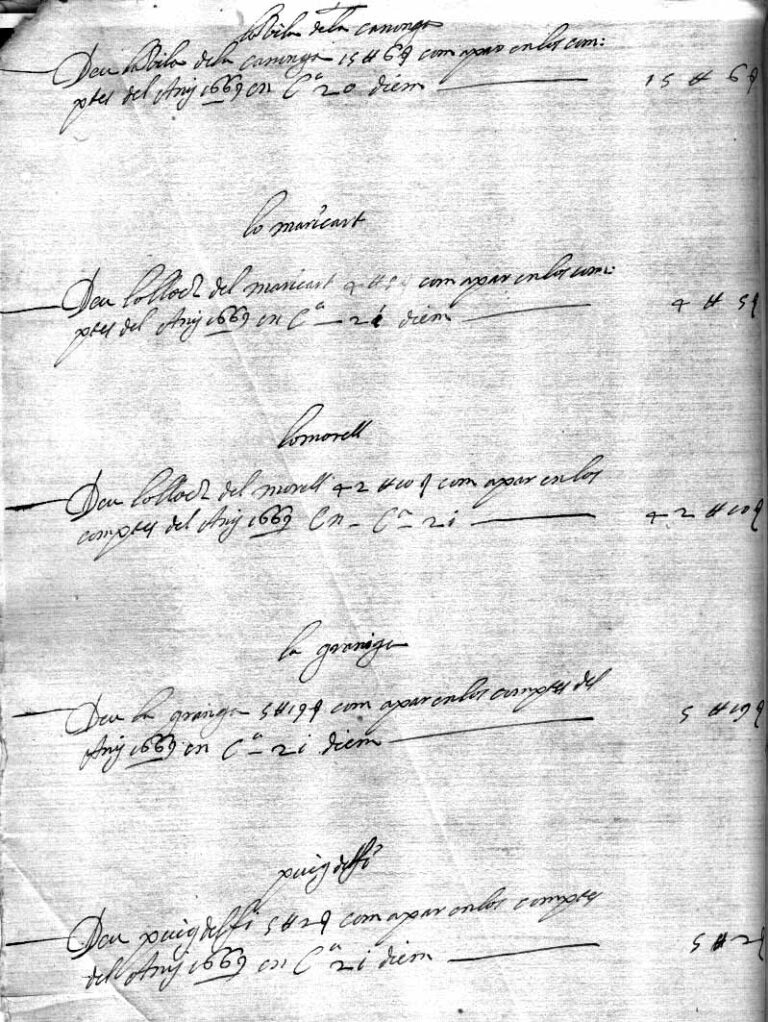 la Vila de la canonga
Deu la Vila dela canonga 15 ꝉꝉ 6 ꝭ com apar en los com:
ptes del Any 1669 en Cª 20 diem 15 ꝉꝉ 6 ꝭ
lo maricart
Deu lo lloch del maricart 4 ꝉꝉ 5 ꝭ com apar en los com:
ptes del Any 1669 en Cª 2i diem 4 ꝉꝉ 5 ꝭ
lo morell
Deu lo lloch del morell 42 ꝉꝉ 10 ꝭ com apar en los
comptes del Any 1669 en Cª 2i 42 ꝉꝉ 10 ꝭ
la granga
Deu la granga 5 ꝉꝉ 19 ꝭ com apar en los comptes del
Any 1669 en Cª 2i diem 5 ꝉꝉ 19 ꝭ
puigdelfi
Deu puigdelfi 5 ꝉꝉ 2 ꝭ com apar en los comptes
del Any 1669 en Cª 2i diem 5 ꝉꝉ 2 ꝭ